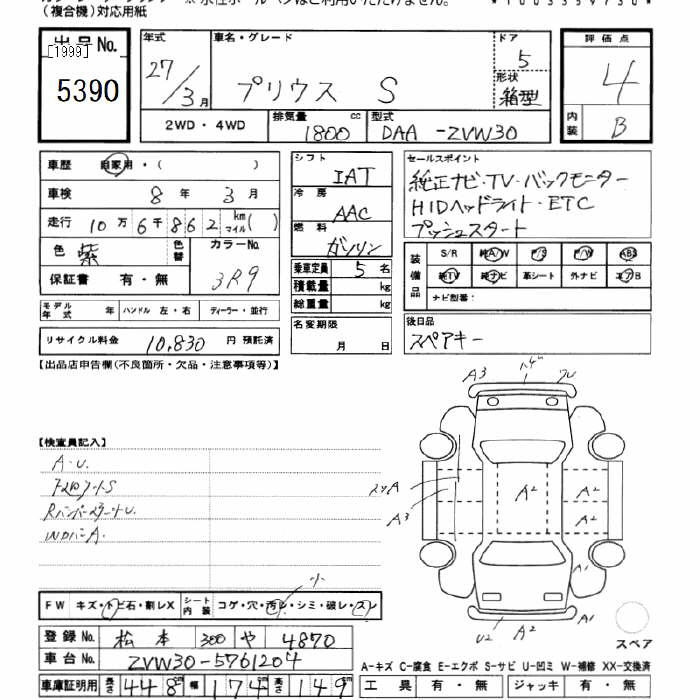 (複合機)対応用紙
出品No.
[1999]
5390
年式
27/3月
車名・グレード
プリウス S
ドア
5
形状
箱型
評価点
4
内装
B
2WD・4WD
排気量
1800
cc
型式
DAA-ZVW30
車歴 自家用・( )
車検 8年 3月
走行 10万6千862 km マイル( )
色 紫
色替
カラーNo.
3R9
保証書 有・無
シフト
IAT
冷房
AAC
燃料
ガソリン
乗車定員 5名
積載量 kg
総重量 kg
セールスポイント
純正ナビ・TV・バックモニター
HIDヘッドライト・ETC
プッシュスタート
装備品
S/R 純A/W P/S P/W ABS
純TV 純ナビ 革シート 外ナビ エアB
ナビ型番:
モデル年式 年 ハンドル 左・右 ディーラー・並行
リサイクル料金 10,830 円 預託済
名変期限
月 日
後日品
スペアキー
【出品店申告欄(不良箇所・欠品・注意事項等)】
【検査員記入】
A・U.
WDパネA.
A3
A3
A2
A2
A2
A1
A1
U2
FW キズ・トビ石・割レX シート内装 コゲ・穴・汚レ・シミ・破レ・スレ
小
登録No. 松本 300 や 4870
車台No. ZVW30-5761204
車庫証明用 長さ 448cm 幅 174cm 高さ 149cm
スペア
A-キズ C-腐食 E-エクボ S-サビ U-凹ミ W-補修 XX-交換済
工具 有・無 ジャッキ 有・無